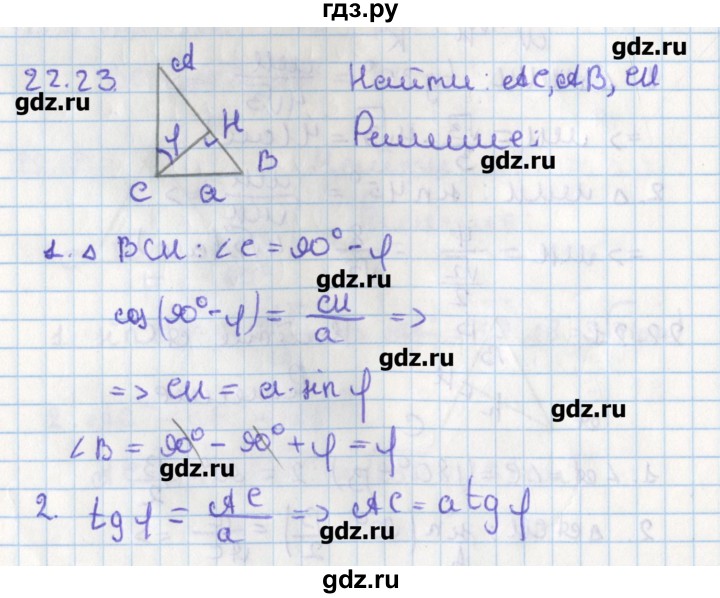 гдз.ру
22.23.
A
φ
H
B
C
a
Найти: AC, AB, CH
gdz.ru
gdz.ru
Решение:
gdz.ru
1. Δ BCH: ∠C = 90° - φ
gdz.ru
cos(90° - φ) = CH/a =>
gdz.ru
=> CH = a · sin φ
gdz.ru
∠B = 90° - 90° + φ = φ
gdz.ru
2. tg φ = AC/a => AC = a tg φ
gdz.ru
gdz.ru